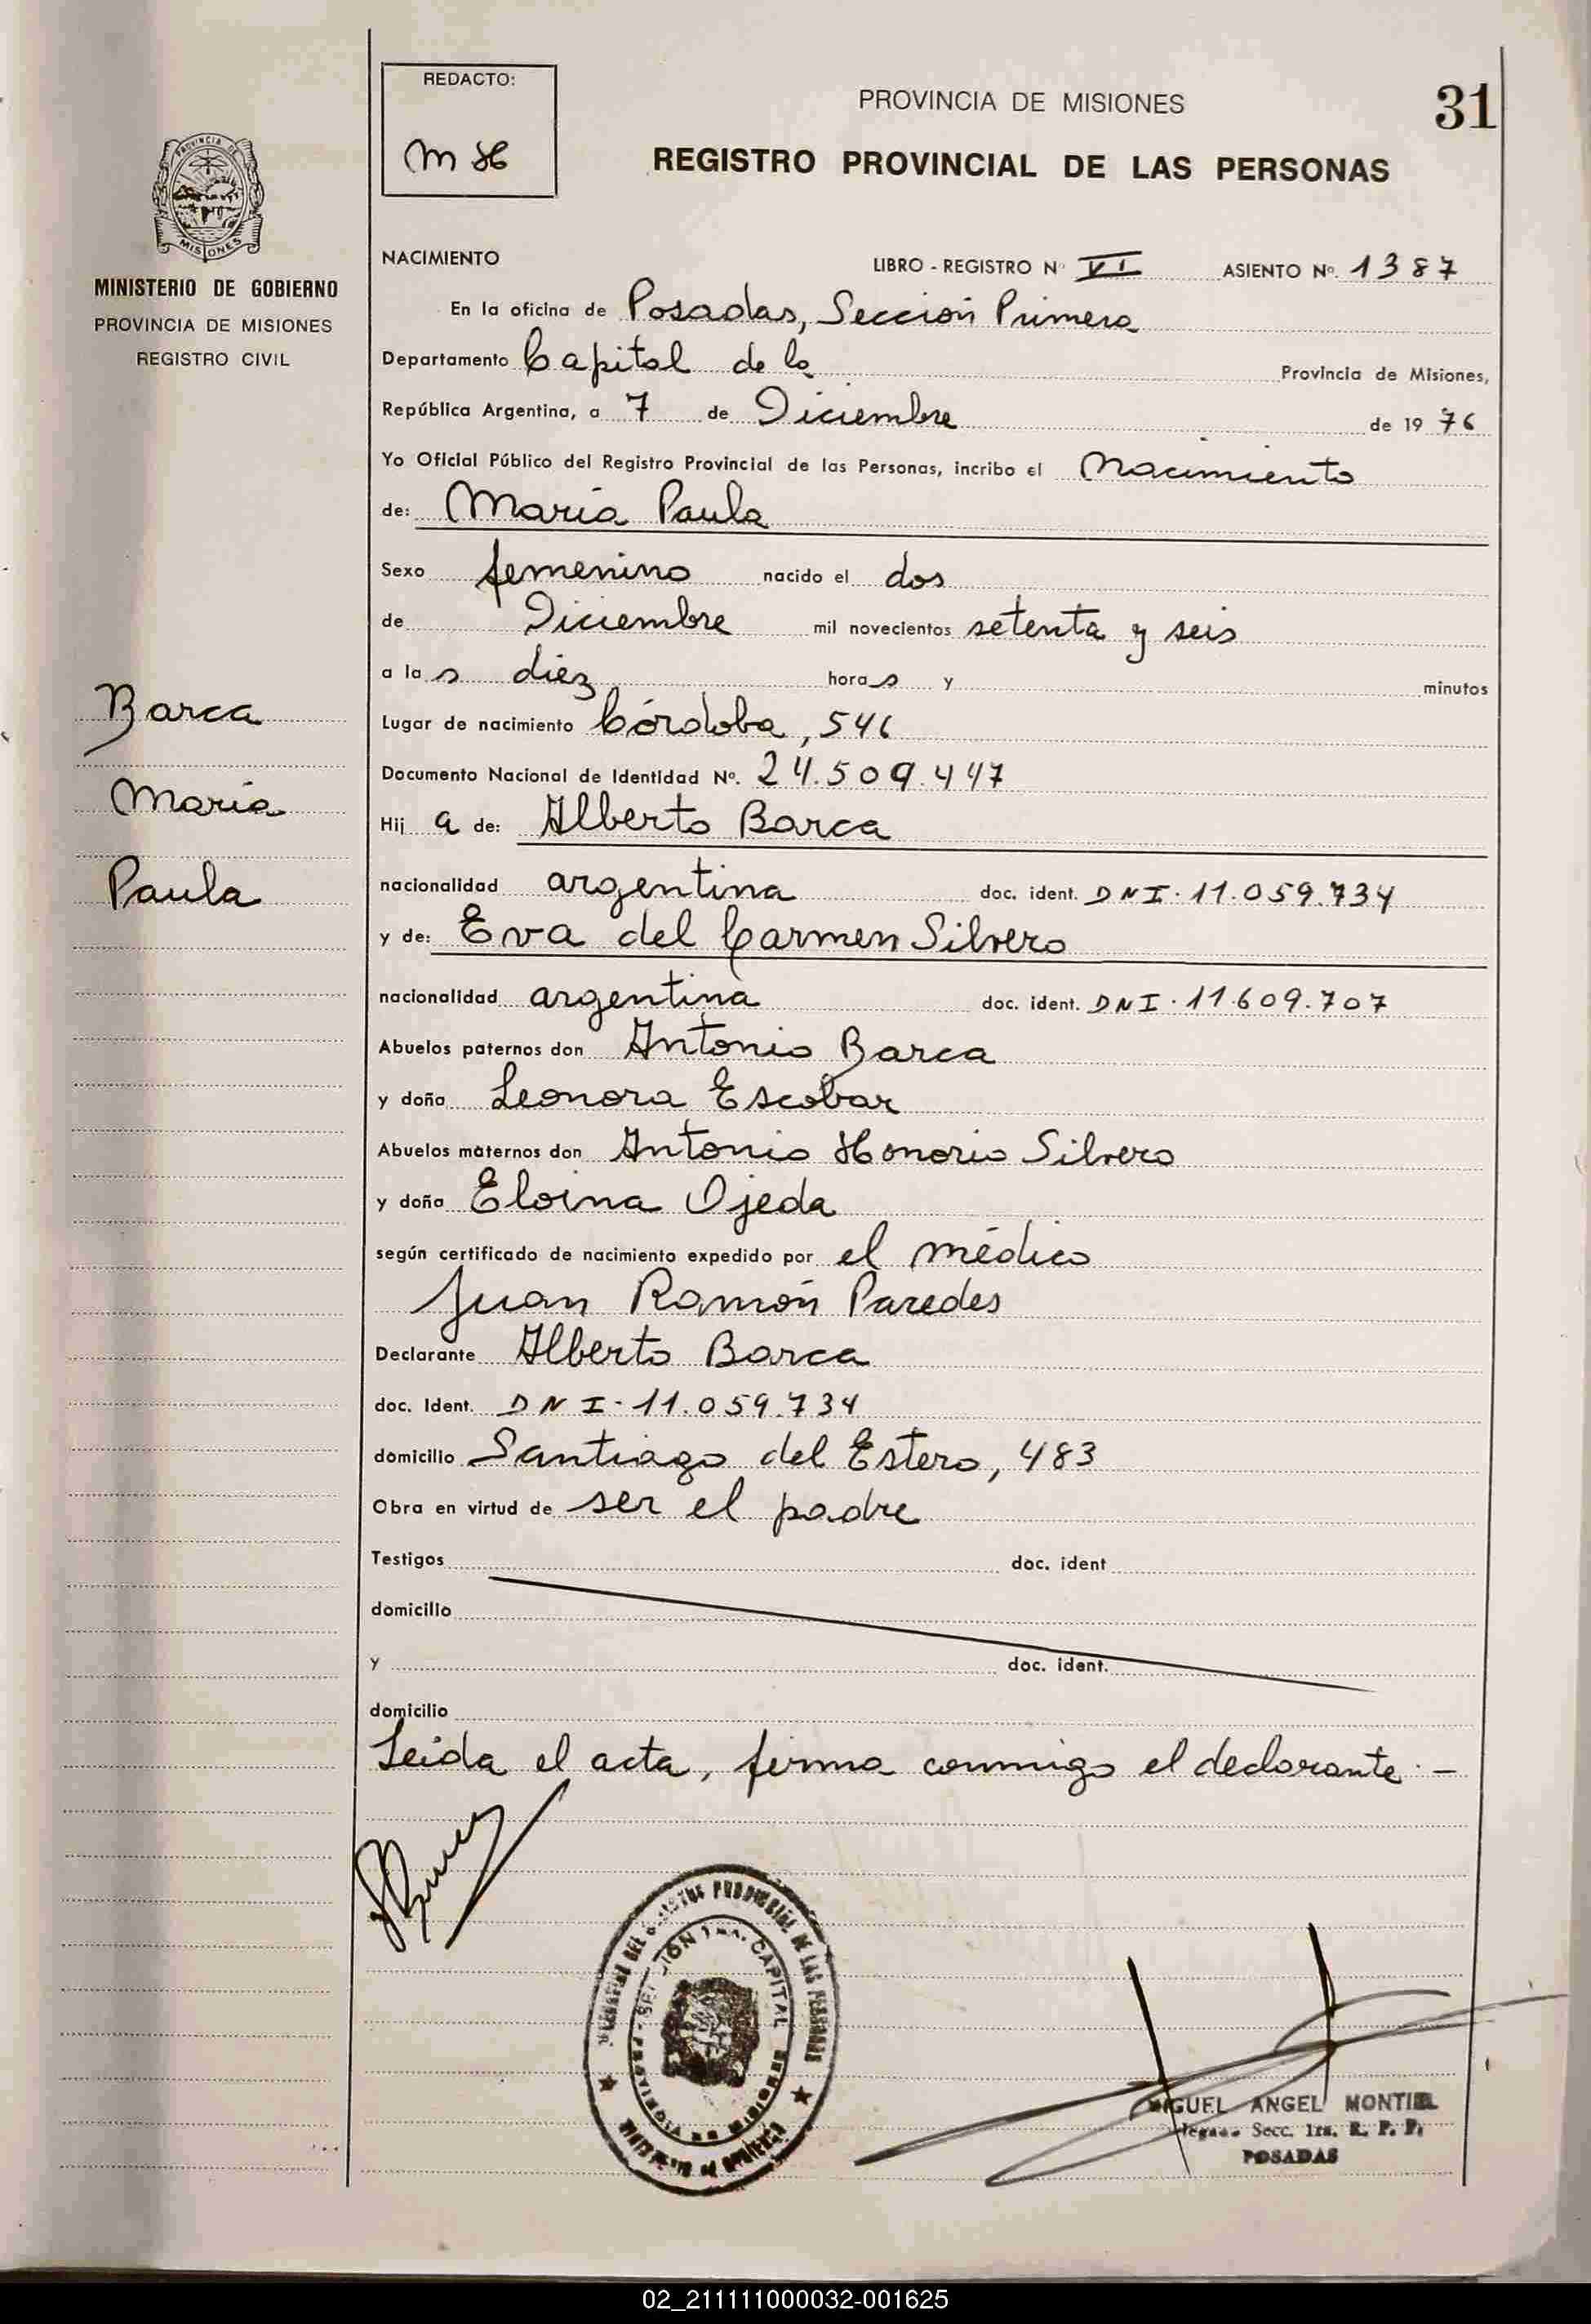 REDACTO:
M H
PROVINCIA DE MISIONES
31
REGISTRO PROVINCIAL DE LAS PERSONAS
PROVINCIA DE
MISIONES
MINISTERIO DE GOBIERNO
PROVINCIA DE MISIONES
REGISTRO CIVIL
Barca
Maria
Paula
NACIMIENTO LIBRO - REGISTRO Nº VI ASIENTO Nº. 1387
En la oficina de Posadas, Sección Primera
Departamento Capital de la Provincia de Misiones,
República Argentina, a 7 de Diciembre de 1976
Yo Oficial Público del Registro Provincial de las Personas, incribo el Nacimiento
de: María Paula
Sexo femenino nacido el dos
de Diciembre mil novecientos setenta y seis
a las diez horas y minutos
Lugar de nacimiento Córdoba, 546
Documento Nacional de Identidad Nº. 24.509.447
Hija de: Alberto Barca
nacionalidad argentina doc. ident. DNI. 11.059.734
y de: Eva del Carmen Silvero
nacionalidad argentina doc. ident. DNI. 11.609.707
Abuelos paternos don Antonio Barca
y doña Leonora Escobar
Abuelos maternos don Antonio Honorio Silvero
y doña Eloina Ojeda
según certificado de nacimiento expedido por el médico
Juan Ramón Paredes
Declarante Alberto Barca
doc. Ident. DNI. 11.059.734
domicilio Santiago del Estero, 483
Obra en virtud de ser el padre
Testigos doc. ident
domicilio
y doc. ident.
domicilio
Leida el acta, firma conmigo el declarante.-
CAPITAL
MIGUEL ANGEL MONTIEL
Secc. 1ra. R. P. P.
POSADAS
02_211111000032-001625